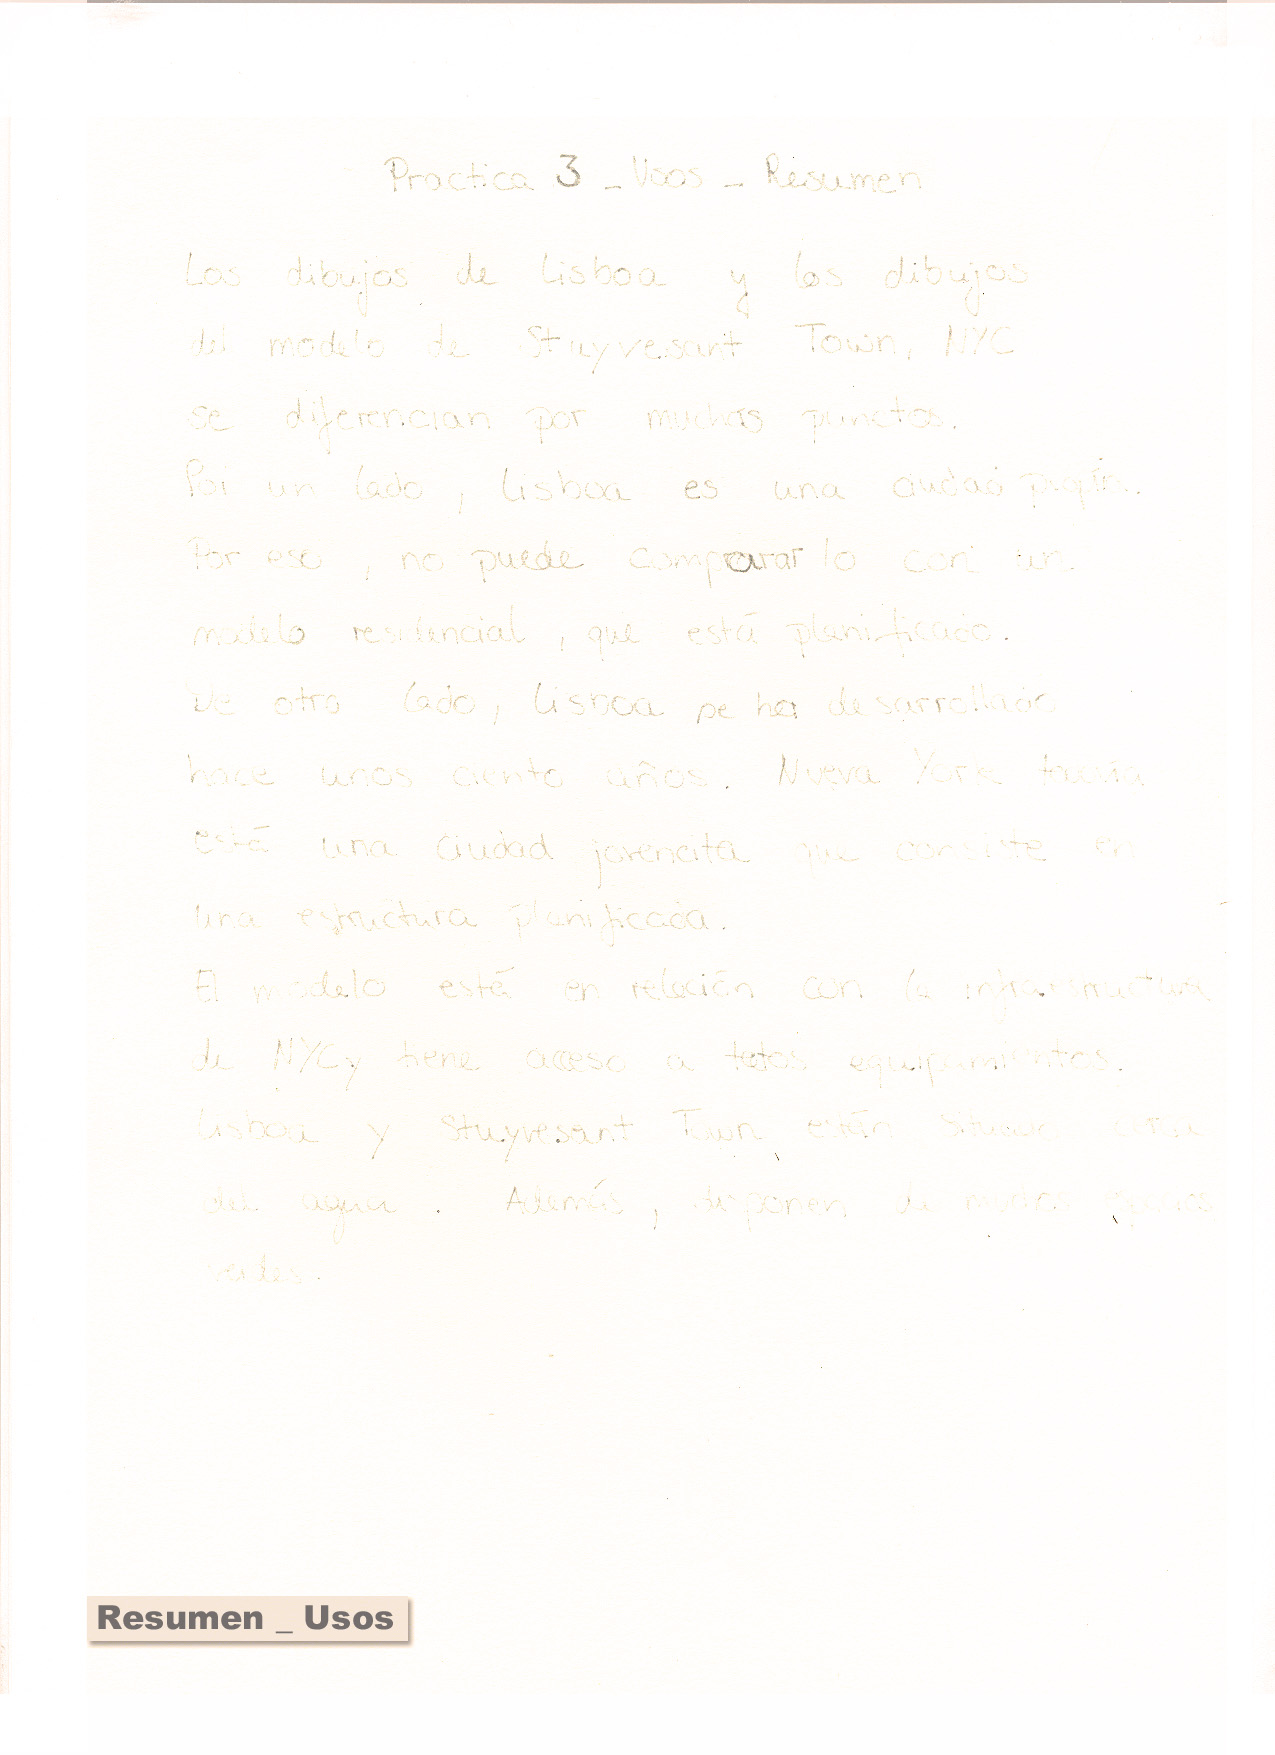 Practica 3 _ Usos _ Resumen
Los dibujos de Lisboa y los dibujos
del modelo de Stuyvesant Town, NYC
se diferencian por muchos punctos.
Por un lado, Lisboa es una ciudad propia.
Por eso, no puede compararlo con un
modelo residencial, que está planificado.
De otro lado, Lisboa se ha desarrollado
hace unos ciento años. Nueva York
está una ciudad jovencita que consiste en
una estructura planificada.
El modelo está en relación con la infraestructura
de NYC y tiene acceso a totos equipamientos.
Lisboa y Stuyvesant Town están cerca
del agua. Además, disponen de muchos
verdes.
Resumen _ Usos